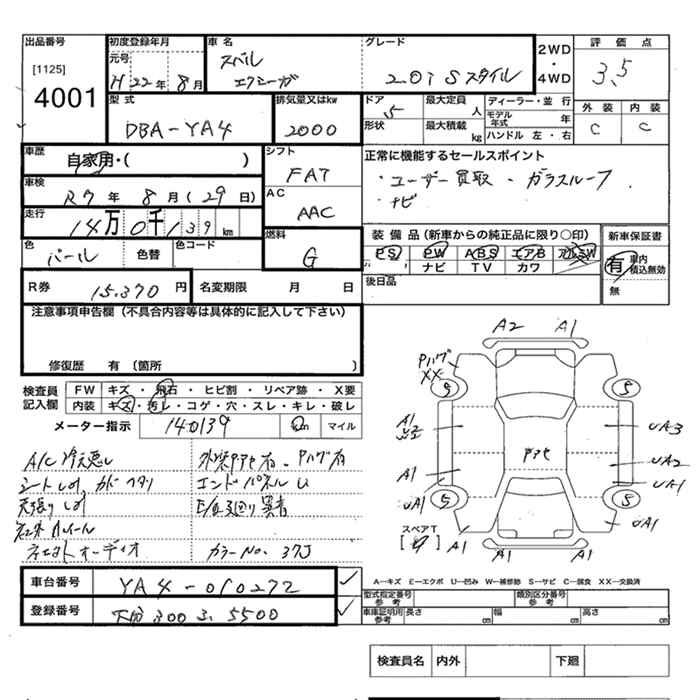 出品番号 [1125] 4001
初度登録年月 元号 H 22 年 8 月
車名 スバル エクシーガ
グレード 2.0i Sスタイル
2WD・4WD
評価点 3.5
外装 C 内装 C
型式 DBA-YA4
排気量又はkw 2000
ドア 5 形状
最大定員 人
最大積載 kg
ディーラー・並行
モデル年式 年
ハンドル 左・右
車歴 自家用・( )
シフト FAT
正常に機能するセールスポイント
・ユーザー買取 ・ガラスルーフ
・ナビ
車検 R7 年 8 月 (29 日)
AC AAC
走行 14万0千139 km
色 パール 色替 色コード
燃料 G
装備品(新車からの純正品に限り○印)
PS PW ABS エアB アルミ SW
ナビ TV カワ
新車保証書
有 車内積込無効
無
R券 15.370 円
名変期限 月 日
後日品
注意事項申告欄(不具合内容等は具体的に記入して下さい)
修復歴 有(箇所 )
検査員記入欄
FW キズ・飛石・ヒビ割・リペア跡・X要
内装 キズ・汚レ・コゲ・穴・スレ・キレ・破レ
メーター指示 140139 km マイル
A/C 冷え悪し
天張り
社外ホイール
オーディオ
エンドパネル U
カラーNo. 37J
A2 A1
Pハゲ
XX
5 5
A1
UA3
UA2
A1 UA1
UA1
5 5
UA1
スペアT
A1 A1 A1
車台番号 YA4-010272
登録番号 大分 300 る 5500
A―キズ E―エクボ U―凹み W―補修跡 S―サビ C―腐食 XX―交換済
型式指定番号 参考 類別区分番号 参考
車庫証明用 参考 長さ cm 幅 cm 高さ cm
検査員名 内外 下廻